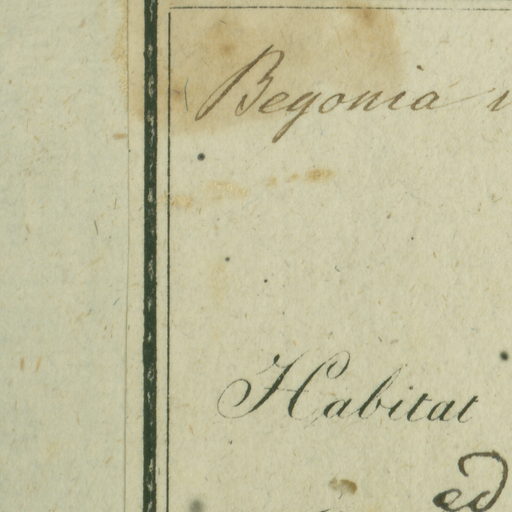 Begonia
Habitat
ed